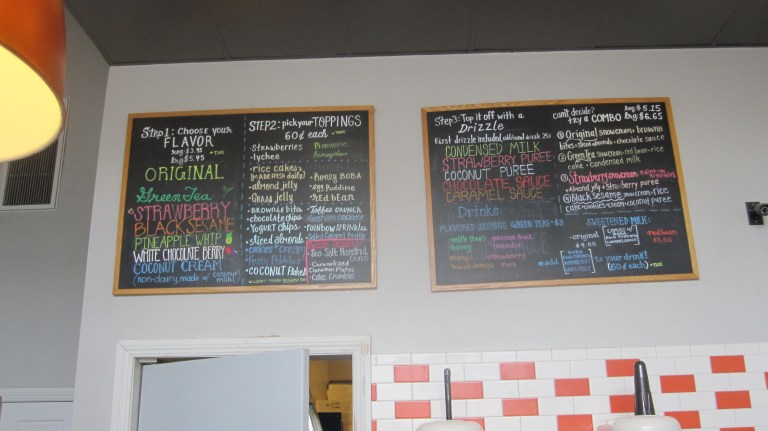 Step1: Choose your
FLAVOR
Reg: $3.95
Lrg: $5.45
+TAX
ORIGINAL
Green Tea
STRAWBERRY
BLACK SESAME
PINEAPPLE WHIP
WHITE CHOCOLATE BERRY
COCONUT CREAM
(non-dairy, made w/ coconut milk!)
STEP2: pick your TOPPINGS
60¢ each +TAX
-Strawberries
-lychee
Pineapple
honeydew
-rice cakes
(MADE FRESH daily)
-almond jelly
-Grass jelly
-Honey BOBA
-egg Pudding
-Red bean
-BROWNIE bites
-chocolate chips
-Yogurt chips
-sliced almonds
-Cookies n' Cream
-Fruity Pebbles
-COCONUT flakes
-Toffee crunch
-Graham cracker
-rainbow SPRINKLES
-Sea Salt Hazelnut
-Caramelized
Cinnamon Flakes
-Cake Crumble
Step3: Top it off with a
Drizzle
First drizzle included, additional drizzle 25¢
CONDENSED MILK
STRAWBERRY PUREE
COCONUT PUREE
CHOCOLATE SAUCE
CARAMEL SAUCE
can't decide?
try a COMBO
Reg: $5.15
Lrg: $6.65
① Original snowcream + brownie
bites + sliced almonds + chocolate sauce
② Green tea snowcream + red bean + rice
cake + condensed milk
③ Strawberry snowcream +
Almond jelly + Strawberry puree
④ black sesame snowcream + rice
cake + coconut puree
Drinks
FLAVORED JASMINE GREEN TEAS-
-mango
SWEETENED MILK:
-original
$4.00
-redbean
$5.50
*add
to your drink!
(60¢ each) +TAX